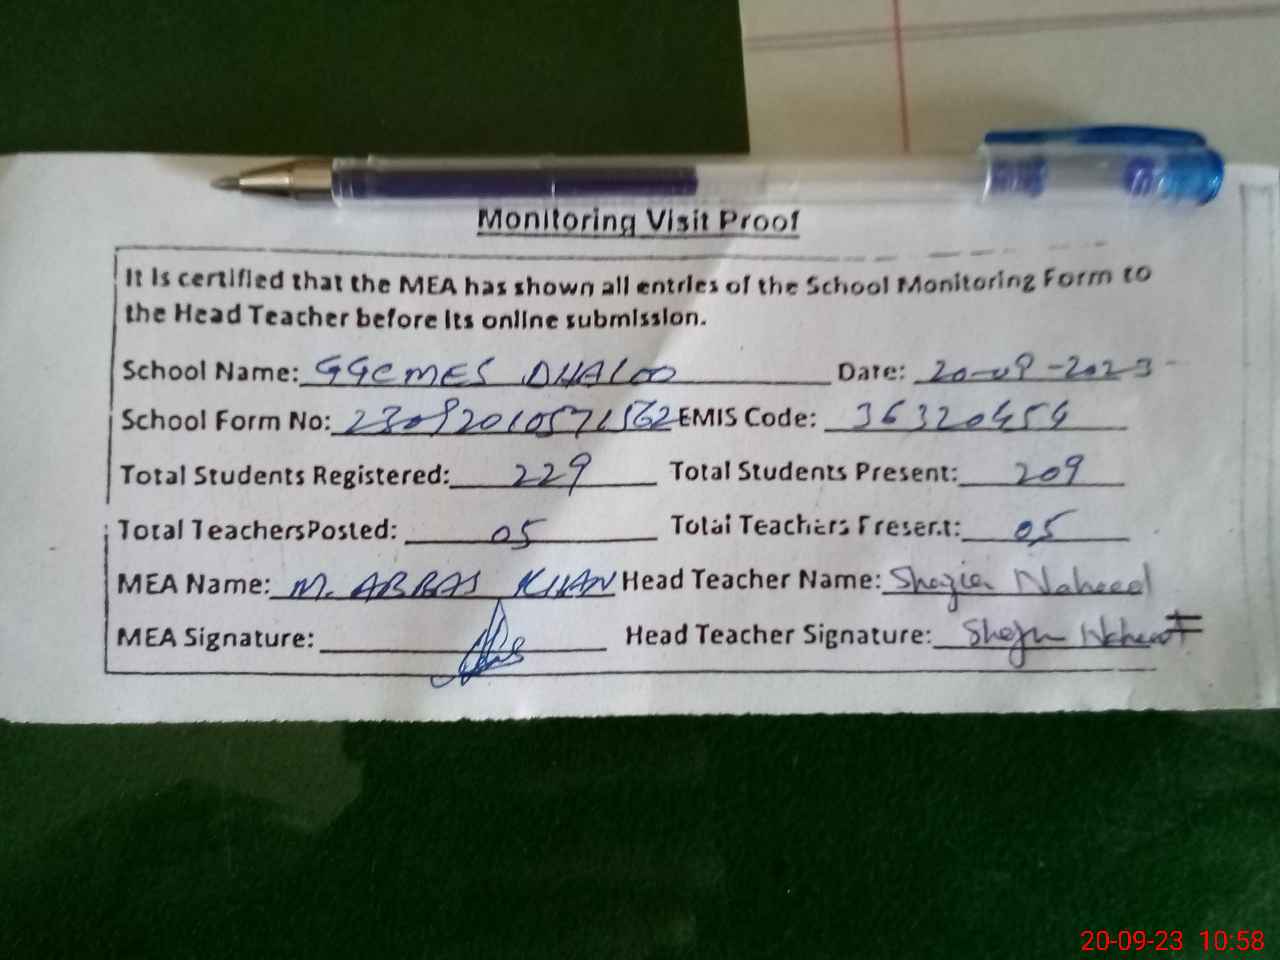 Monitoring Visit Proof
It is certified that the MEA has shown all entries of the School Monitoring Form to
the Head Teacher before its online submission.
School Name: GGCMES DHALOO Date: 20-09-2023
School Form No: 23092010571562 EMIS Code: 36320454
Total Students Registered: 229 Total Students Present: 209
Total TeachersPosted: 05 Total Teachers Present: 05
MEA Name: M. ABBAS KHAN Head Teacher Name: Shazia Naheed
MEA Signature: Head Teacher Signature: Shazia Naheed
20-09-23 10:58